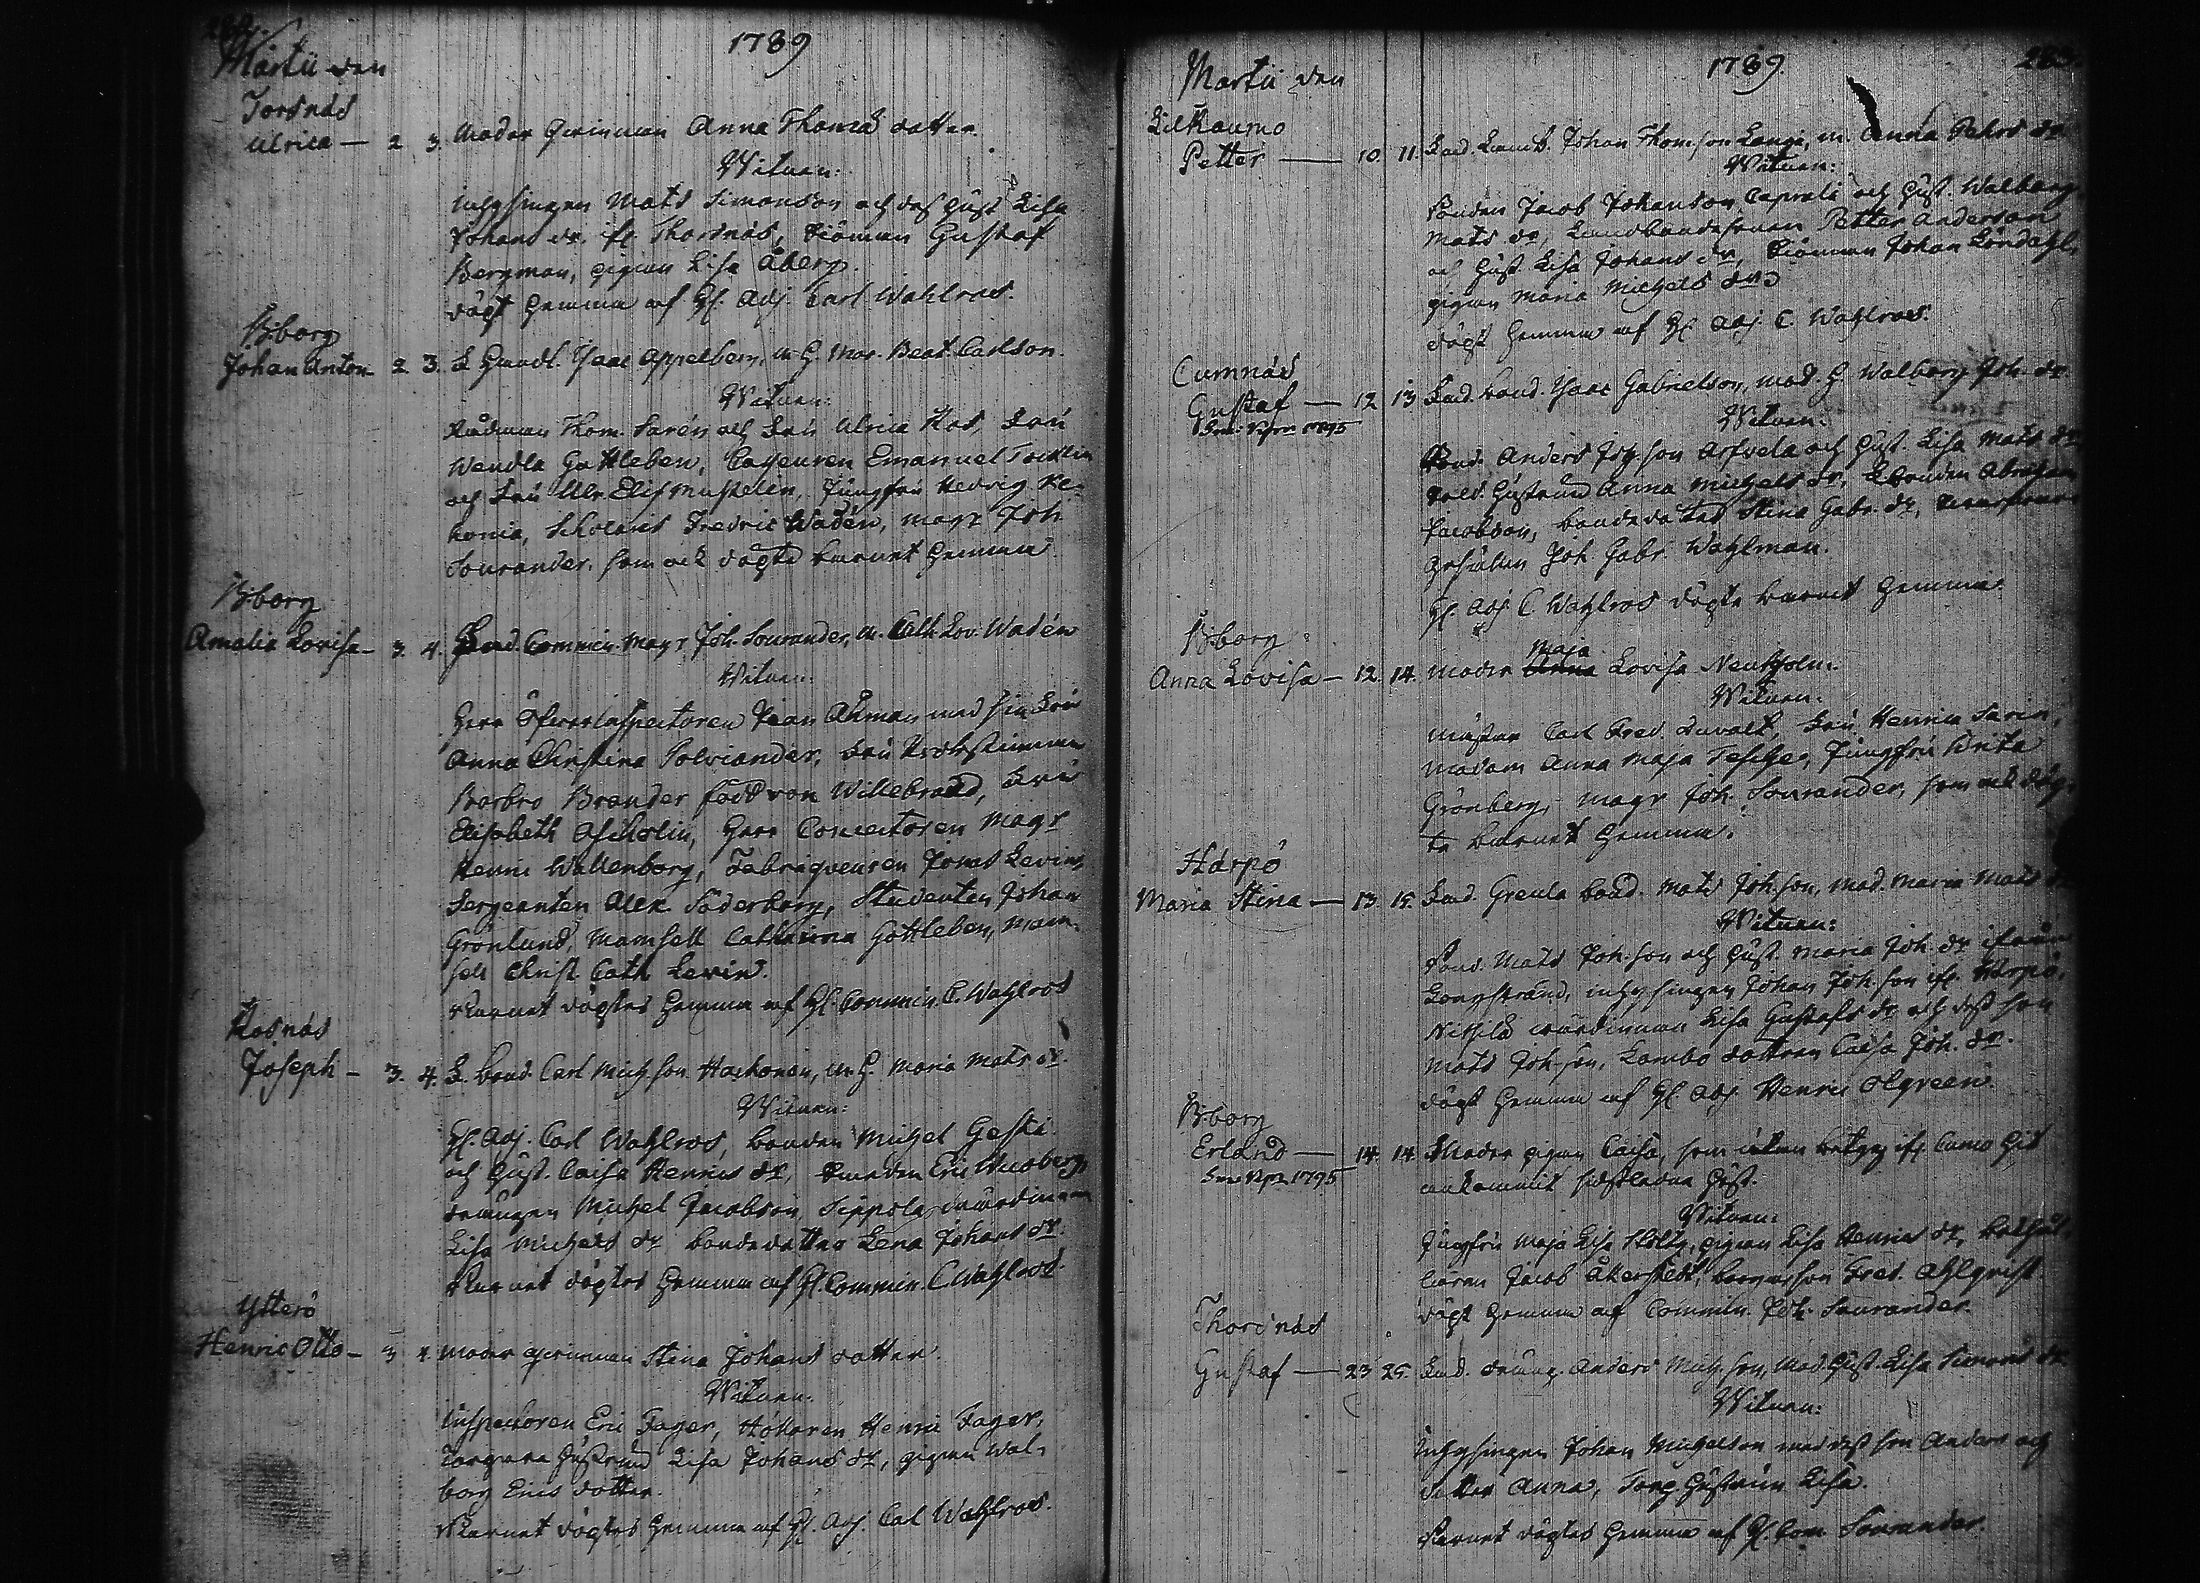 282.
1789
Martii den
Torsnäs
Ulrica — 2 3. Moder qvinnan Anna Thomæ dotter.
Witnen:
Inhysingen Mats Simonson och des hust. Lisa
Johans dr. ifr. Thorsnäs, Siöman Gustaf
Bergman, pigan Lisa Åberg.
döpt hemma af H. Adj. Carl Wahlroos.
B:borg
Johan Anton — 2 3. Isaac Appelberg, m. h. Mar. Beat. Carlson.
Witnen:
Rådman Thom. Sarén och Fru Ulrica Ros, Fru
Wendla Gottleben, Emanuel
och Fru Ulr. Elis Mustelin, Jungfru Hedvig
Scholaris Fredric Wadén, Magr Joh.
Sourander, som ock döpte barnet hemma.
B:borg
Amalia Lovisa — 3. 4. Fad. Commin. Magr Joh. Sourander, m. Cath. Lov. Wadén
Witnen:
Herr Isaac Åhman med sin Fru
Anna Christina Polviander, Fru
Barbro Brander född von Willebrand, Fru
Elisabeth Herr Conrectoren Magr
Henric Wallenborg, Fabriqueuren Jonas Levin,
Sergeanten Alex. Söderborg, Studenten Johan
Grönlund, Mamsell Catharina Gottleben, Mam-
sell Christ. Cath. Levin.
Barnet döptes hemma af H. Commin. C. Wahlroos
Rosnäs
Joseph — 3. 4. F. Bond. Carl Mich. son m. h. Maria Mats dr.
Witnen:
H. Adj. Carl Wahlroos, Bonden Michel
och hust. Caisa Henrics dr, Smeden Eric
drängen Michel Jacobson Sippola,
Lisa Michels dr bondedotter Lena Johans dr.
Barnet döptes hemma af H. Commin. C Wahlroos.
Ytterö
Henric Otto — 3 4. Moder qvinnan Stina Johans dotter
Witnen:
Inspectoren Eric Fager, Hökaren Henric Fager,
Torpare hustrun Lisa Johans dr, pigan Wal-
borg Erics dotter.
Barnet döptes hemma af H. Adj. Carl Wahlroos.
283.
1789.
Martii den
Lilraumo
Petter — 10. 11. Fad. Johan Thomson Lange, m. Anna Pehrs dr
Witnen:
Bonden Jacob Johanson Caprali och hust. Walborg
Mats dr, Landbondesonen Petter Anderson
och hust. Lisa Johans dr, Siöman Johan Söndahl,
pigan Maria Michels dr
döpt hemma af H. Adj. C. Wahlroos.
Cumnäs
Gustaf — 12 13 Fad. bond. Isaac Gabrielson, mod. h. Walborg Joh. dr
1795
Witnen:
Bond. Anders och hust. Lisa Mats dr
hustrun Anna Michels dr, Abraham
Jacobson, bondedotter Stina Gabr. dr,
gesällen Joh. Gabr. Wahlman.
H. Adj. C. Wahlroos döpte barnet hemma.
B:borg
Anna Lovisa — 12. 14. Modren Maja Lovisa
Witnen:
Mästar Carl Fred. Fru Henrica Sarin,
Madam Anna Maja Jungfru Brita
Grönberg, Magr Joh. Sourander, som ock döp-
te barnet hemma.
Härpö
Maria Stina — 13. 15. Fad. Greula bond. Mats Joh. son, mod. Maria Mats dr
Witnen:
Bond. Mats Joh. son och hust. Maria Joh. dr ifrån
Longstrand, inhysingen Johan Joh. son ifr. Härpö,
Lisa Gustafs dr och dess son
Mats Joh. son, Lambo dottren Caisa Joh. dr.
döpt hemma af H. Adj. Henric Olgreen.
B:borg
Erland — 14. 14. Modren pigan Caisa, som utan betyg ifr. Cumo hit
1795
ankommit sidstledne höst.
Witnen:
Jungfru Maja Lisa Stoltz, pigan Lisa Henrics dr,
Jacob Åkerstedt, borgarson Fred. Ahlqvist.
döpt hemma af Commin. Joh. Sourander.
Thorsnäs
Gustaf — 23 25. Fad. dräng. Anders Mich. son, Mod. hust. Lisa Simons dr
Witnen:
Inhysingen Johan Michelson med dess son Anders och
dotter Anna, Torp. hustrun Lisa.
Barnet döptes hemma af H. Com. Sourander.